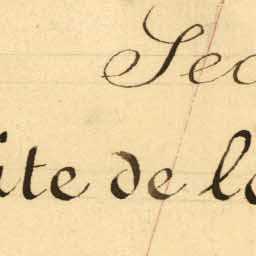 Sec
ite de la